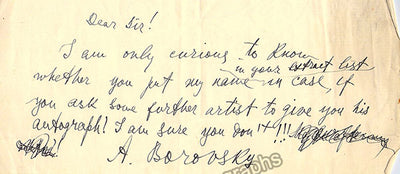 Dear Sir!
I am only curious to know
in your extract list
whether you put my name in case, if
you ask some further artist to give you his
autograph! I am sure you don't!!!
A. Borovsky